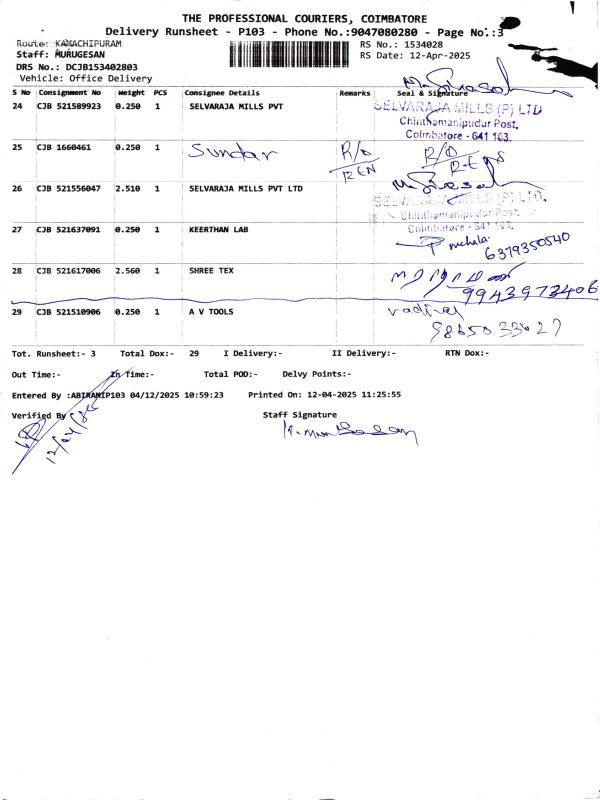 THE PROFESSIONAL COURIERS, COIMBATORE
Delivery Runsheet - P103 - Phone No.:9047080280 - Page No.:3
Route: KAMACHIPURAM RS No.: 1534028
Staff: MURUGESAN RS Date: 12-Apr-2025
DRS No.: DCJB153402803
Vehicle: Office Delivery
S No Consignment No Weight PCS Consignee Details Remarks Seal & Signature
24 CJB 521589923 0.250 1 SELVARAJA MILLS PVT SELVARAJA MILLS (P) LTD
Chinthamanipudur Post,
Coimbatore - 641 103.
25 CJB 1660461 0.250 1 Sundar R/O R/O
26 CJB 521556047 2.510 1 SELVARAJA MILLS PVT LTD SELVARAJA MILLS (P) LTD.
Chinthamanipudur Post,
Coimbatore - 641 103.
27 CJB 521637091 0.250 1 KEERTHAN LAB
6379350540
28 CJB 521617006 2.560 1 SHREE TEX
9943973406
29 CJB 521510906 0.250 1 A V TOOLS vadivel
98650 33627
Tot. Runsheet:- 3 Total Dox:- 29 I Delivery:- II Delivery:- RTN Dox:-
Out Time:- In Time:- Total POD:- Delvy Points:-
Entered By :ABIRAMIP103 04/12/2025 10:59:23 Printed On: 12-04-2025 11:25:55
Verified By Staff Signature
12/04/25